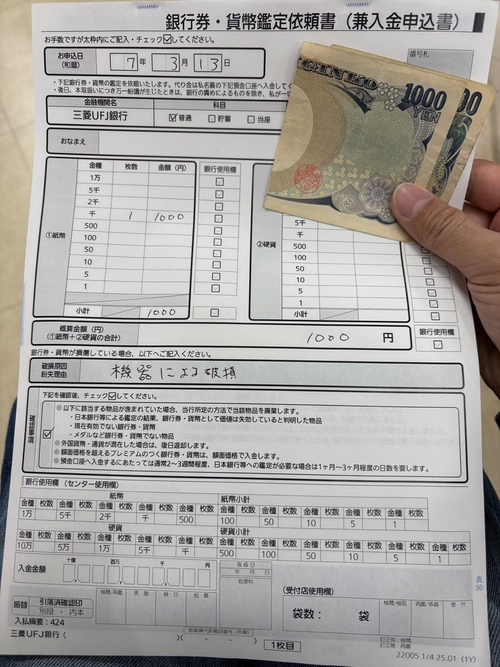 銀行券・貨幣鑑定依頼書（兼入金申込書）
お手数ですが太枠内にご記入・チェック☑してください。
お申込日
（和暦）
7年 3月 13日
番号札
・下記銀行券・貨幣の鑑定を依頼いたします。代り金は私名義の下記預金口座へ入金してく
・後日、本取扱いにつき万一紛議が生じたときは、銀行の責めによるものを除き、私が一
金融機関名
科目
三菱UFJ銀行
☑普通 □貯蓄 □当座
おなまえ
①紙幣
金種 枚数 金額（円） 銀行使用欄
1万
5千
2千
千 1 1000
500
100
50
10
5
1
小計 1000
②硬貨
5千
千
500
100
50
10
5
1
小計
1000
YEN
概算金額（円）
（①紙幣＋②硬貨の合計）
1000 円
銀行使用欄
銀行券・貨幣が損傷している場合、以下へご記入ください。
破損原因
紛失理由
機器による破損
確認事項
下記を確認後、チェック☑してください。
☑
●以下に該当する物品が含まれていた場合、当行所定の方法で当該物品を廃棄します。
・日本銀行等による鑑定の結果、銀行券・貨幣として価値は失効していると判明した物品
・現在有効でない銀行券・貨幣
・メダルなど銀行券・貨幣でない物品
●外国貨幣・通貨が混在した場合は、後日返却します。
●額面価格を超えるプレミアムのつく銀行券・貨幣は、額面価格で入金します。
●預金口座へ入金するにあたっては通常2～3週間程度、日本銀行等への鑑定が必要な場合は1ヶ月～3ヶ月程度の日数を要します。
銀行使用欄（センター使用欄）
紙幣
紙幣小計
金種 枚数 金種 枚数 金種 枚数 金種 枚数 金種 枚数 金種 枚数 金種 枚数 金種 枚数 金種 枚数 金種 枚数
1万 5千 2千 千 500 100 50 10 5 1
硬貨
硬貨小計
金種 枚数 金種 枚数 金種 枚数 金種 枚数 金種 枚数 金種 枚数 金種 枚数 金種 枚数 金種 枚数 金種 枚数 金種 枚数
10万 5万 1万 5千 千 500 100 50 10 5 1
入金金額
十億 百万 千 円
取扱日
年 月 日
表50
振替
引落済確認印
別段・内本
入払摘要：424
（受付店使用欄）
袋数： 袋
検閲/検取
再鑑/係員
受付
三菱UFJ銀行（
1枚目
訂正無・再鑑
22005 1/4 25.01 (1Y)